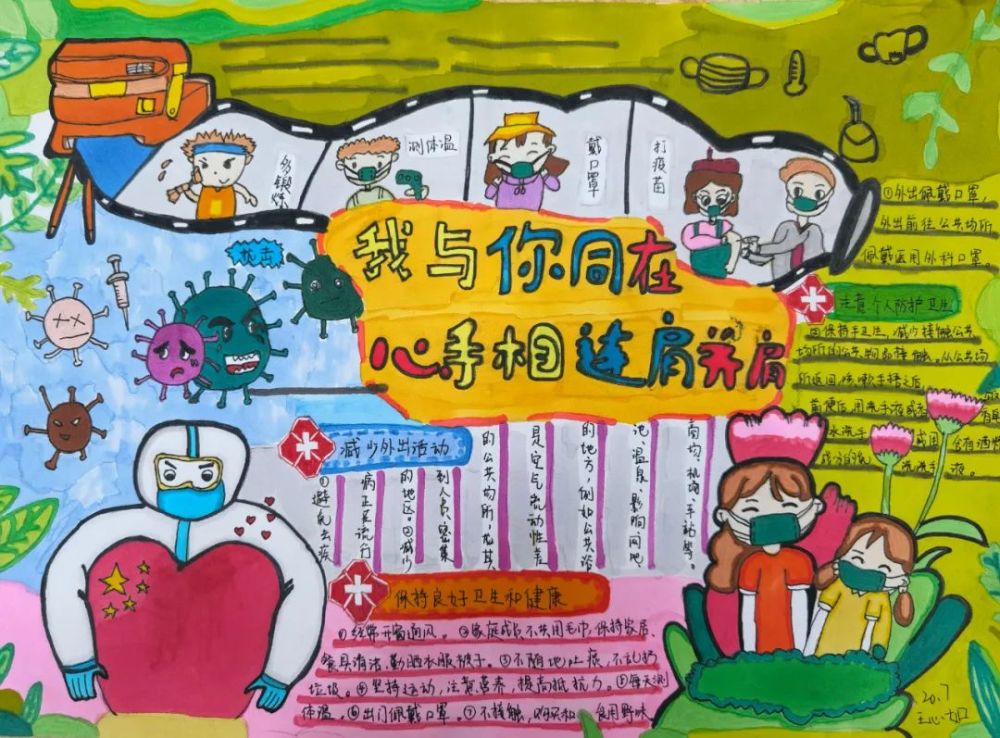 多锻炼
测体温
戴口罩
打疫苗
抗击
我与你同在
心手相连肩并肩
①外出佩戴口罩。
外出前往公共场所
佩戴医用外科口罩。
注意个人防护卫生
②保持手卫生。减少接触公共
场所的公共物品接触。从公共场
所返回,咳嗽手捂之后
减少外出活动
①避免去疫
病正在流行
的地区。②减少
到人员密集
的公共场所,尤其
是空气流动性差
的地方,例如公共浴
池、温泉、影
商场、机场、车站等。
保持良好卫生和健康
①经常开窗通风。②家庭成员不共用毛巾,保持家居、
餐具清洁,勤晒衣服被子。③不随地吐痰,不乱扔
垃圾。④坚持运动,注意营养,提高抵抗力。⑤每天测
体温。⑥出门佩戴口罩。⑦不接触,购买和 食用野味
20.7